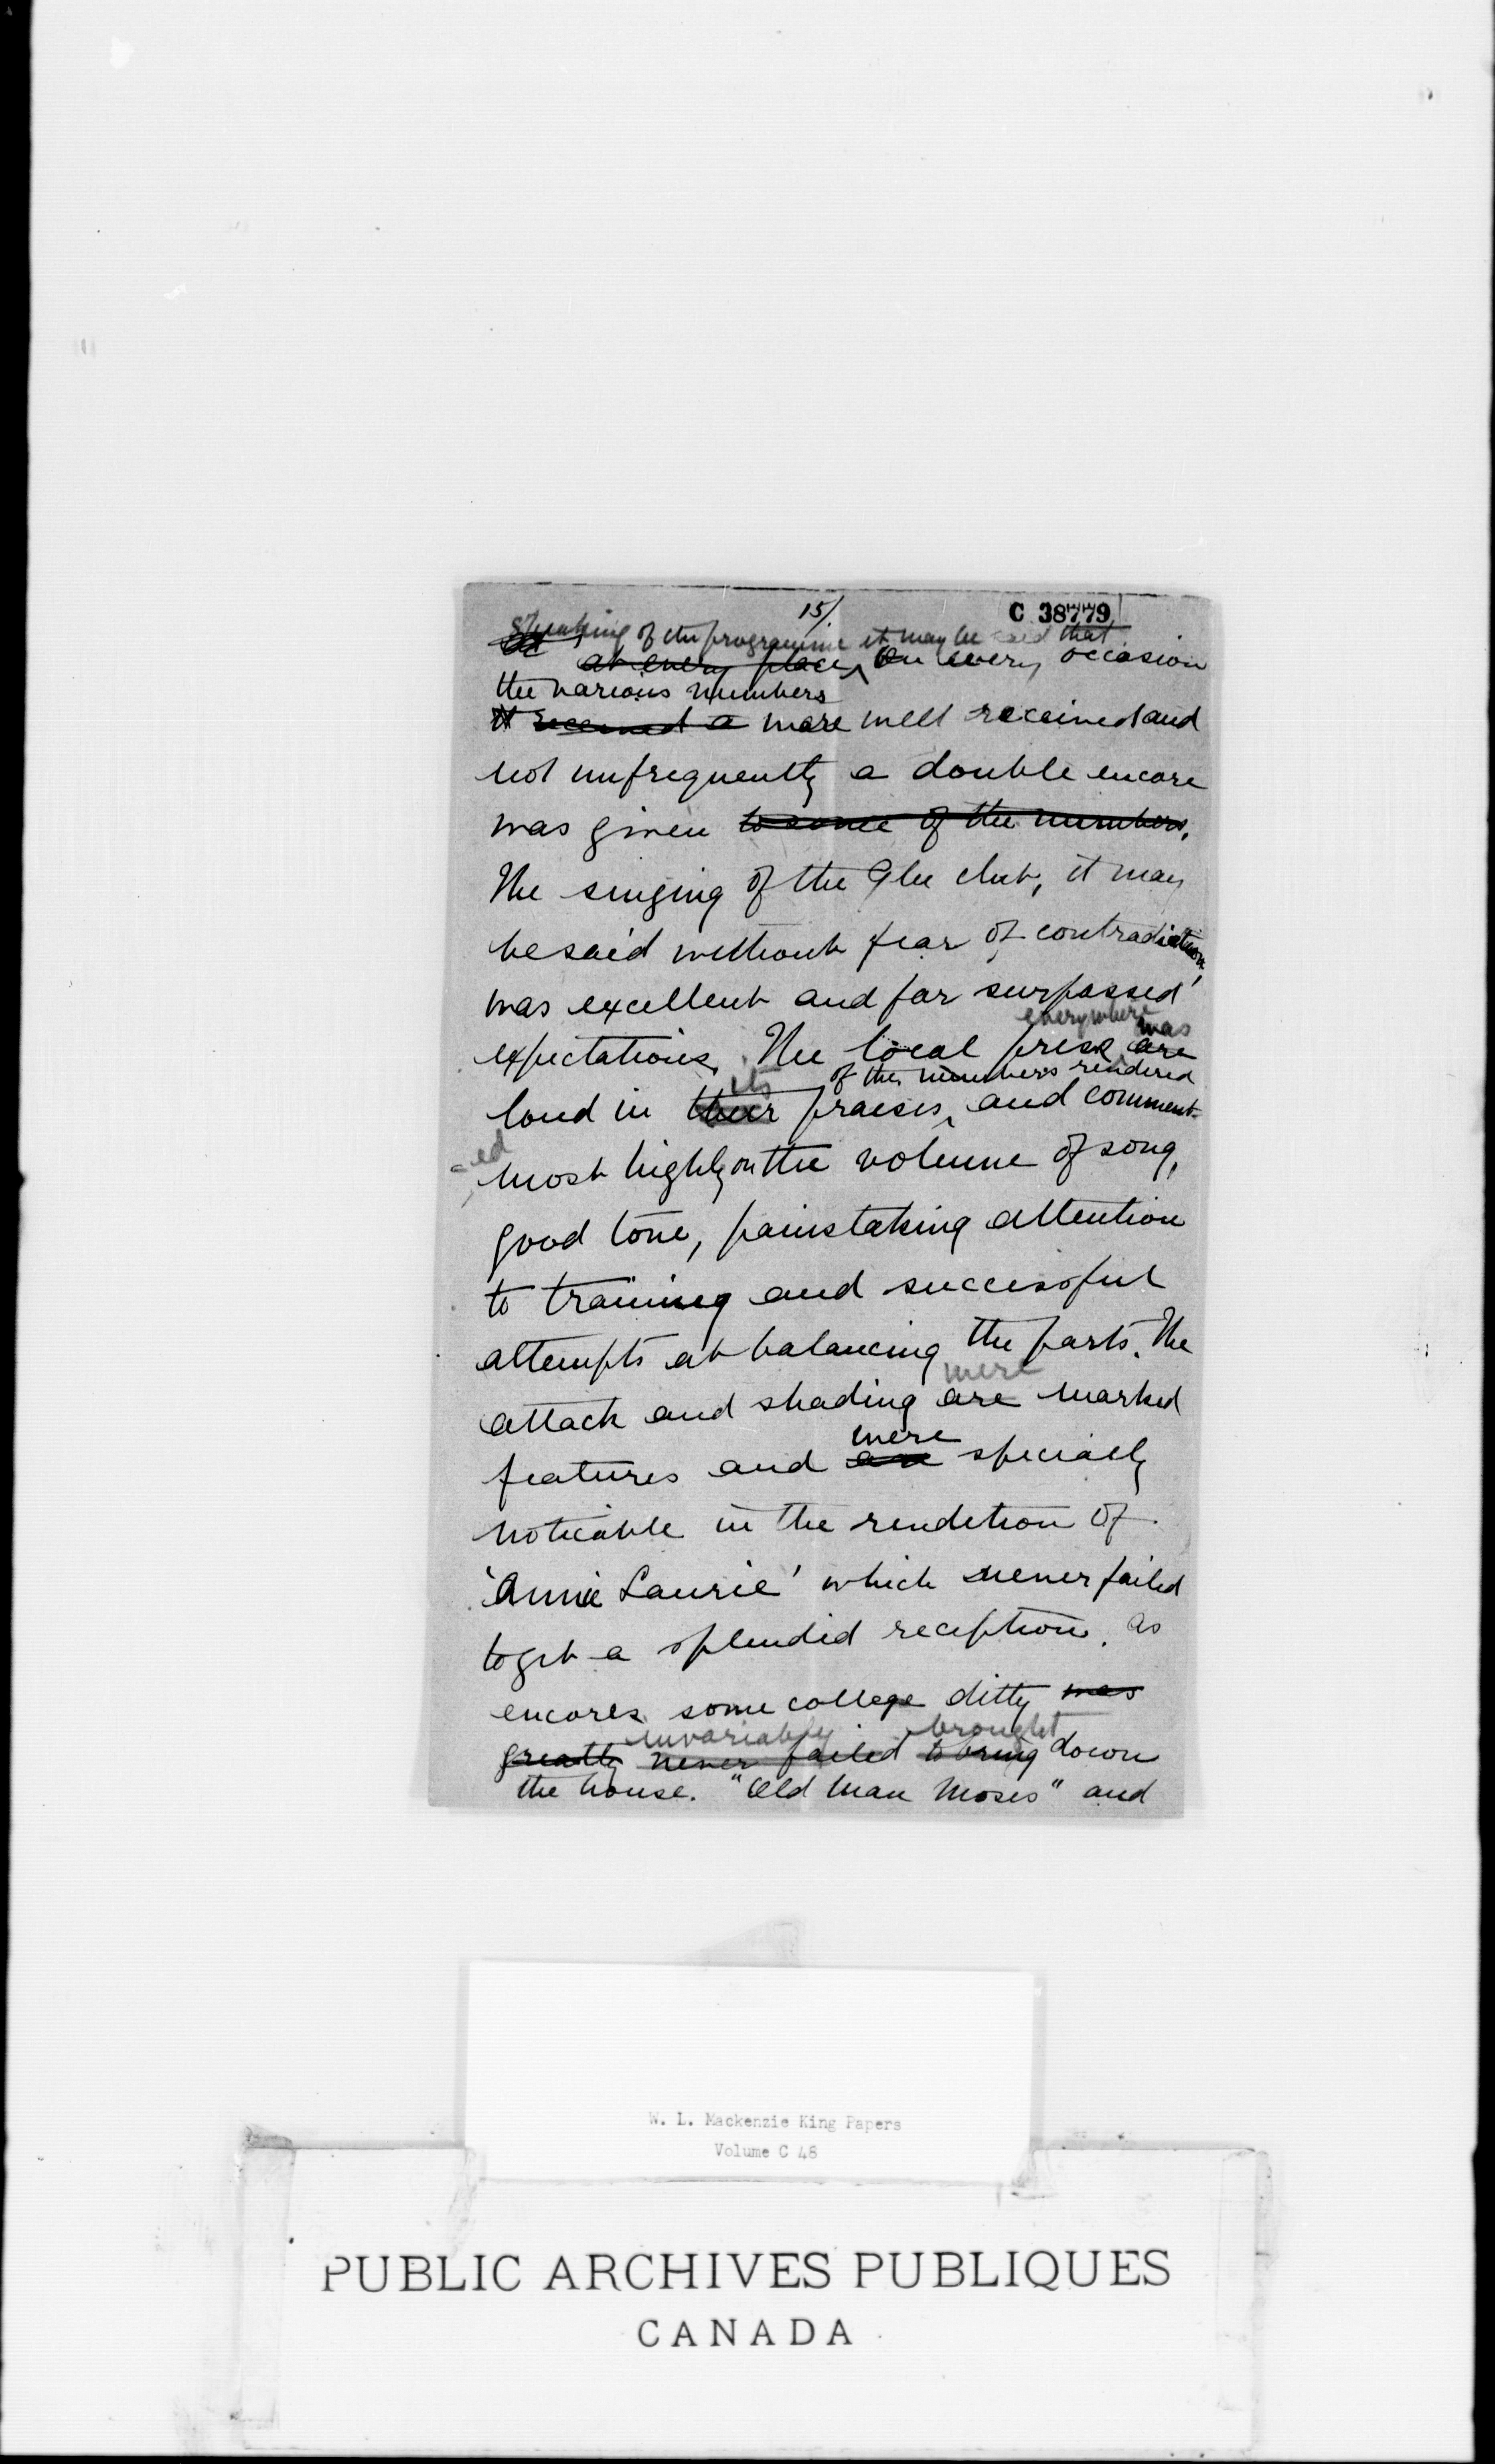 15/.
C 38779
Speaking of the programme it may be said that
at every place, On every occasion
the various numbers
It received a were well received and
not unfrequently a double encore
was given to some of the numbers.
The singing of the Glee club, it may
be said without fear of contradiction,
was excellent and far surpassed
everywhere was
expectations. The local press are
its of the numbers rendered
loud in their praises, and comment-
-ed
most highly on the volume of song,
good tone, painstaking attention
to training and successful
attempts at balancing the parts. The
were
attack and shading are marked
were
features and are specially
noticable in the rendetion of
'Annie Laurie' which never failed
to get a splendid reception. As
encores some college ditty was
invariably brought
greatly never failed to bring down
the house. "Old Man Moses" and
W. L. Mackenzie King Papers
Volume C 48
PUBLIC ARCHIVES PUBLIQUES
CANADA